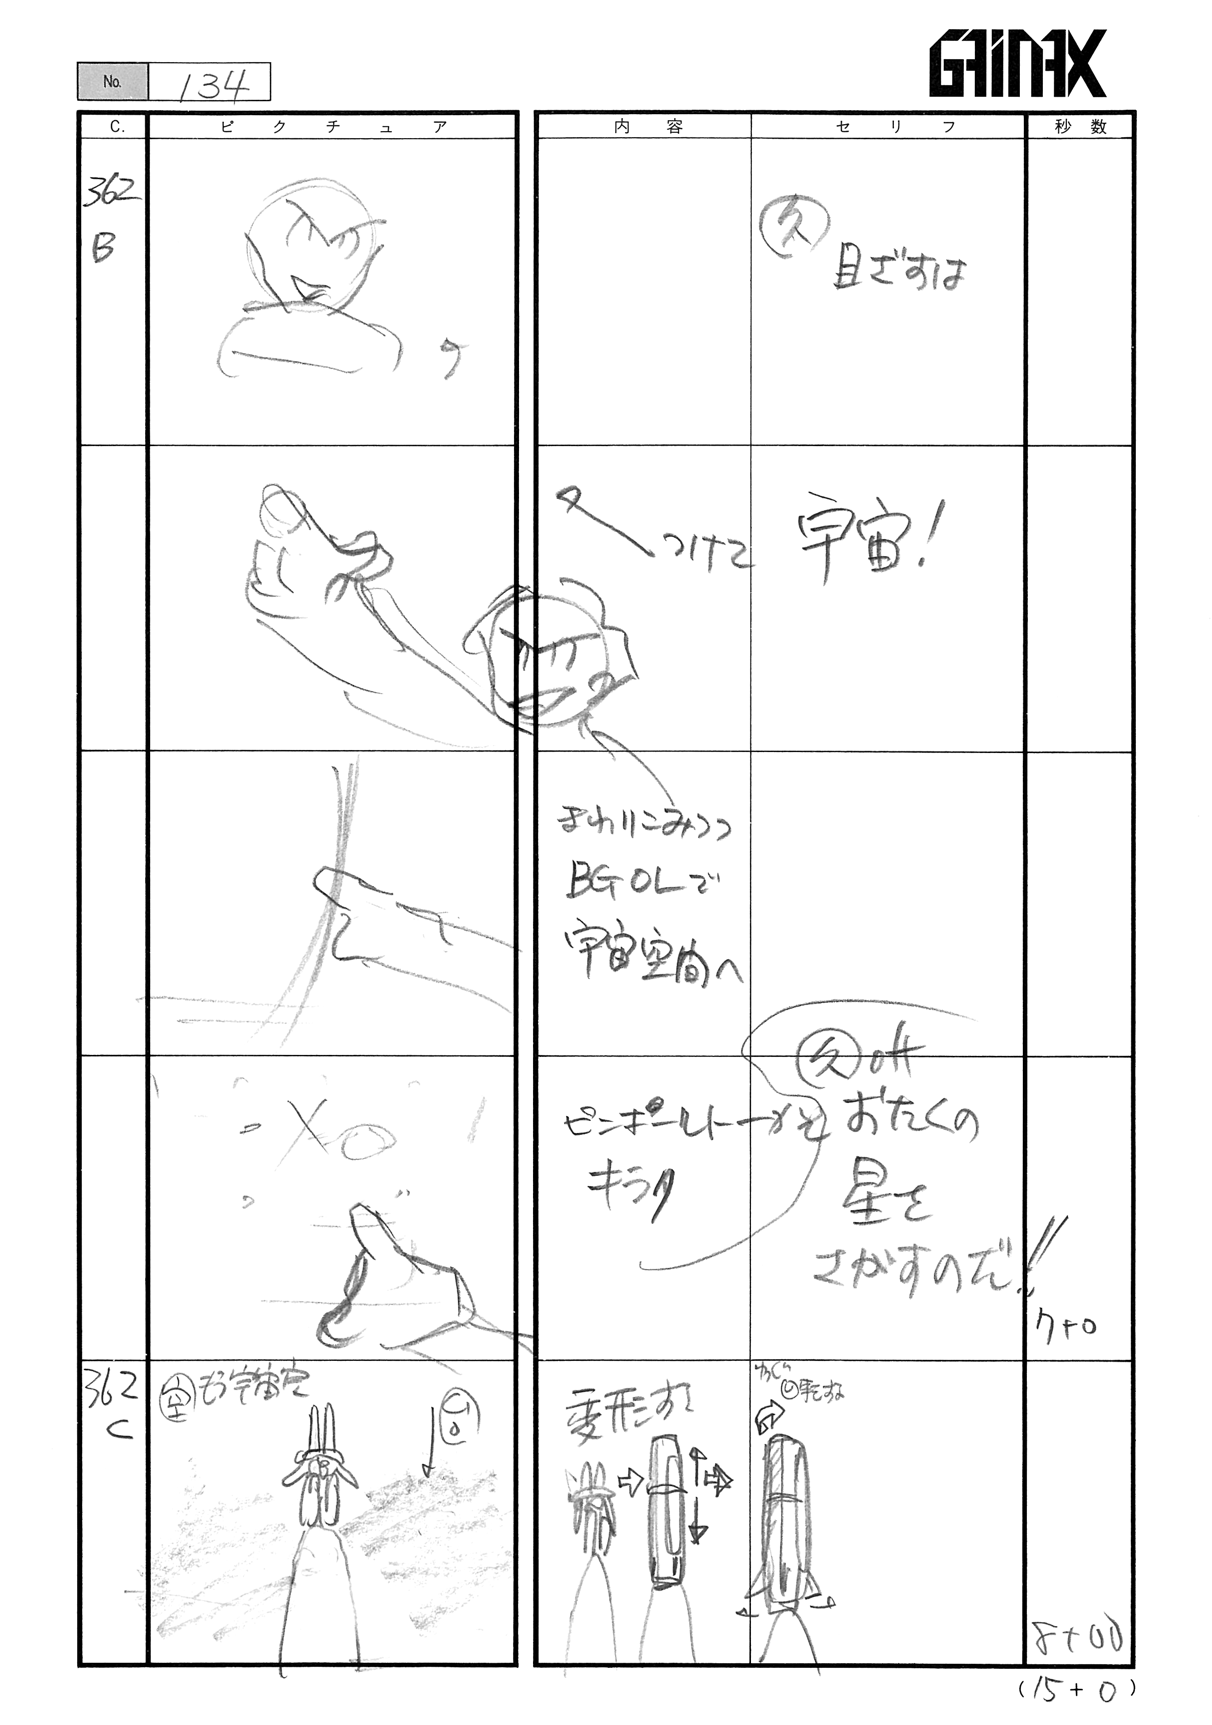 GAINAX
No. 134
C. ピクチュア 内容 セリフ 秒数
362
B
久
目ざすは
つけて
宇宙!
まわりこみつつ
BG OLで
宇宙空間へ
久 off
おたくの
星を
さがすのだ!!
ピンポール
キラッ
7+0
362
C
空 もう宇宙空
変形する
8+00
(15+0)